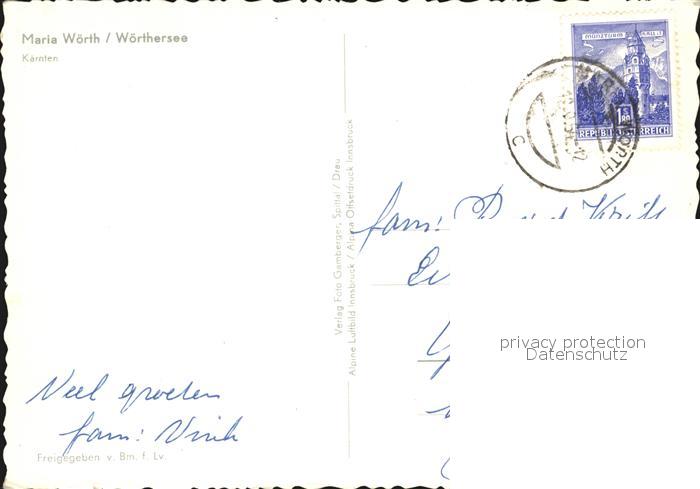 Maria Wörth / Wörthersee
Kärnten
MÜNZTURM HALL I.T.
1 S 80
REPUBLIK ÖSTERREICH
WÖRTH
C
Verlag Foto Gamberger, Spittal / Drau
Alpine Luftbild Innsbruck / Alpina Offsetdruck Innsbruck
fam:
privacy protection
Datenschutz
Veel groeten
fam: Vink
Freigegeben v. Bm. f. Lv.